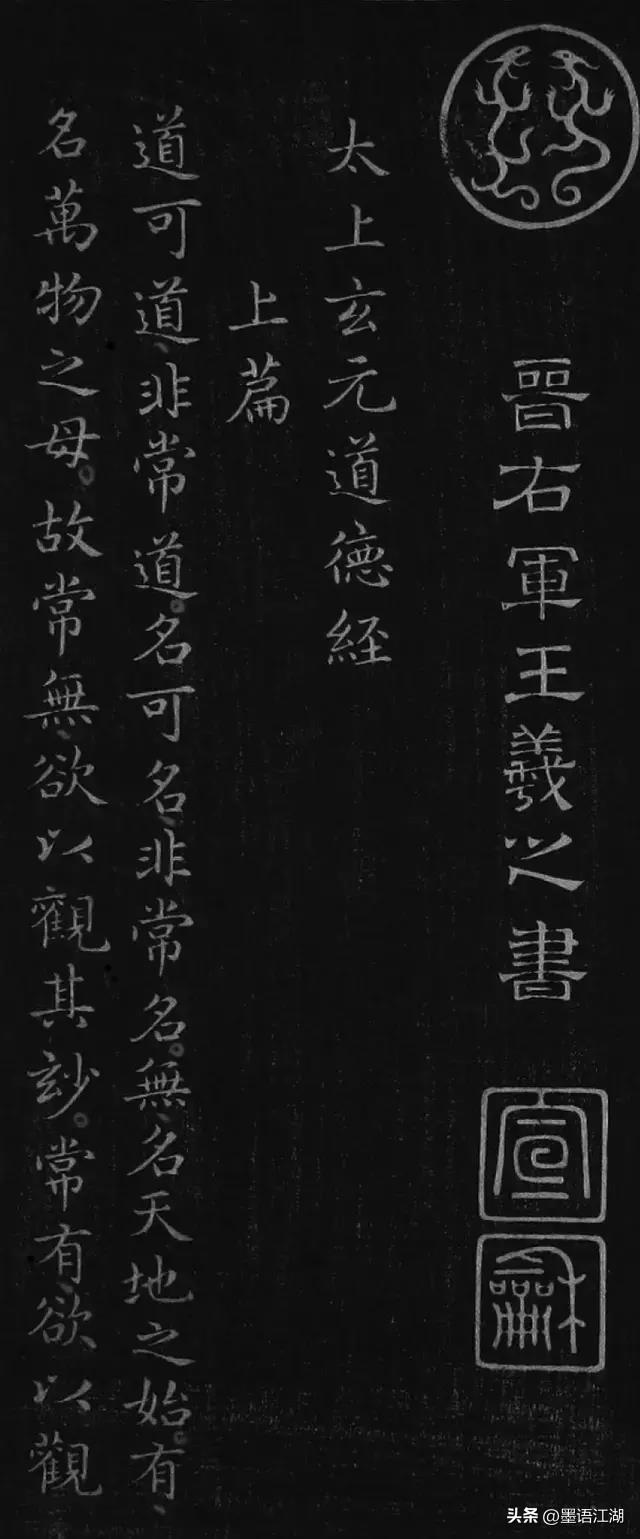 晉右軍王羲之書
宣
龢
太上玄元道德経
上篇
道可道、非常道。名可名、非常名。無、名天地之始。有、
名萬物之母。故常無、欲以觀其玅。常有、欲以觀
头条 @墨语江湖